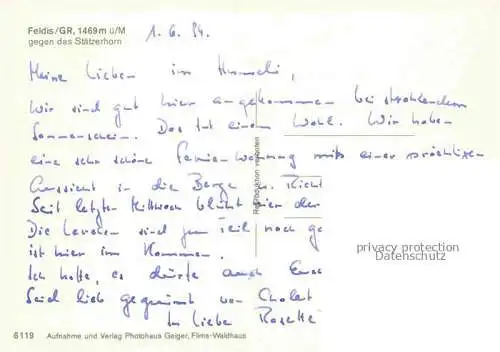 Feldis/GR, 1469 m ü/M
gegen das Stätzerhorn
1. 6. 94.
Meine Lieben im
Wir sind gut hier angekommen bei strahlendem
Sonnenschein. Das tut einem Wohl. Wir haben
eine sehr schöne Ferienwohnung mit einer prächtigen
Aussicht in die Berge u. Richt
Seit letzten Mittwoch blüht hier der
Die Lerchen sind zum Teil noch ge
ist hier im Kommen.
Ich hoffe, es dürfte auch Euch
Seid lieb gegrüsst von Cholet
In Liebe Rosette
Reproduktion verboten
privacy protection
Datenschutz
6119 Aufnahme und Verlag Photohaus Geiger, Flims-Waldhaus